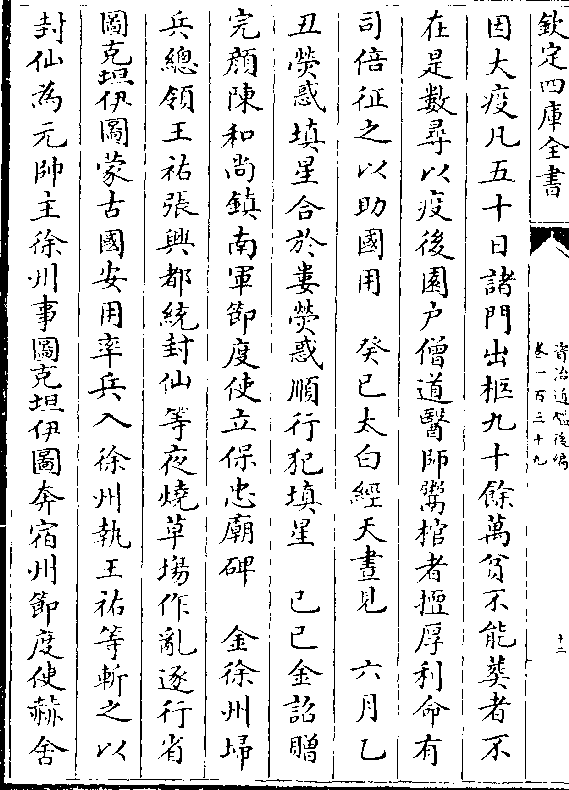 欽定四庫全書
資治通鑑後編
卷一百三十九
十二
因大疫凡五十日諸門出柩九十餘萬貧不能葬者不
在是數尋以疫後園户僧道醫師鬻棺者擅厚利命有
司倍征之以助國用　癸巳太白經天晝見　六月乙
丑熒惑填星合於婁熒惑順行犯填星　己巳金詔贈
完顔陳和尚鎮南軍節度使立保忠廟碑　金徐州埽
兵總領王祐張興都統封仙等夜燒草場作亂逐行省
圖克坦伊圖蒙古國安用率兵入徐州執王祐等斬之以
封仙為元帥主徐州事圖克坦伊圖奔宿州節度使赫舍